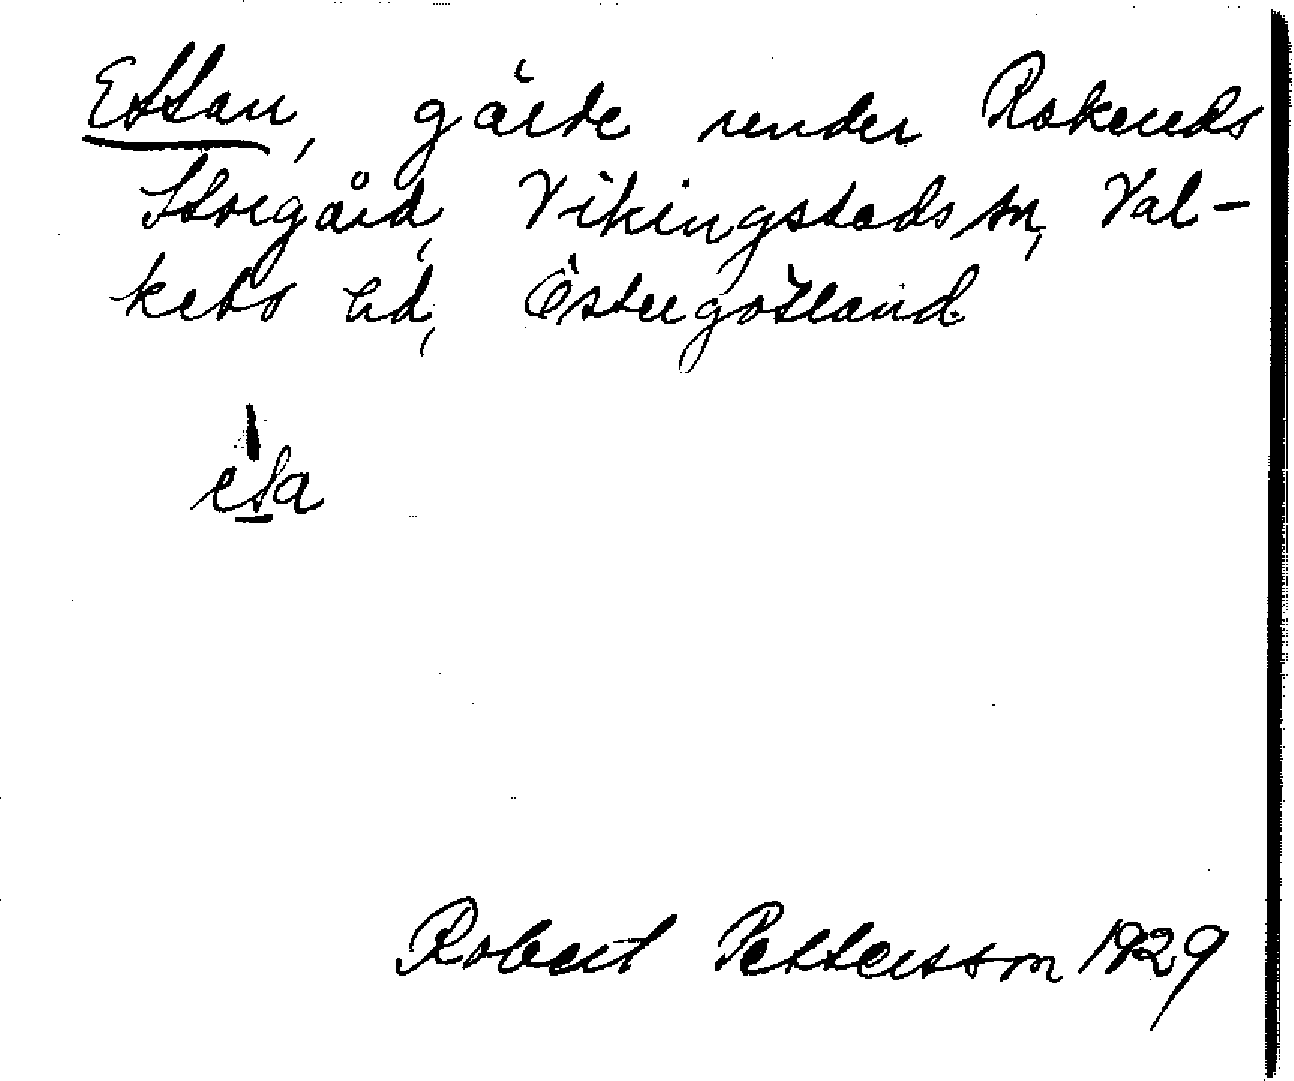 Ettan, gärde under Rakereds
Storgård, Vikingstads sn, Val-
kebo hd, Östergötland.
eta
Robert Pettersson 1929